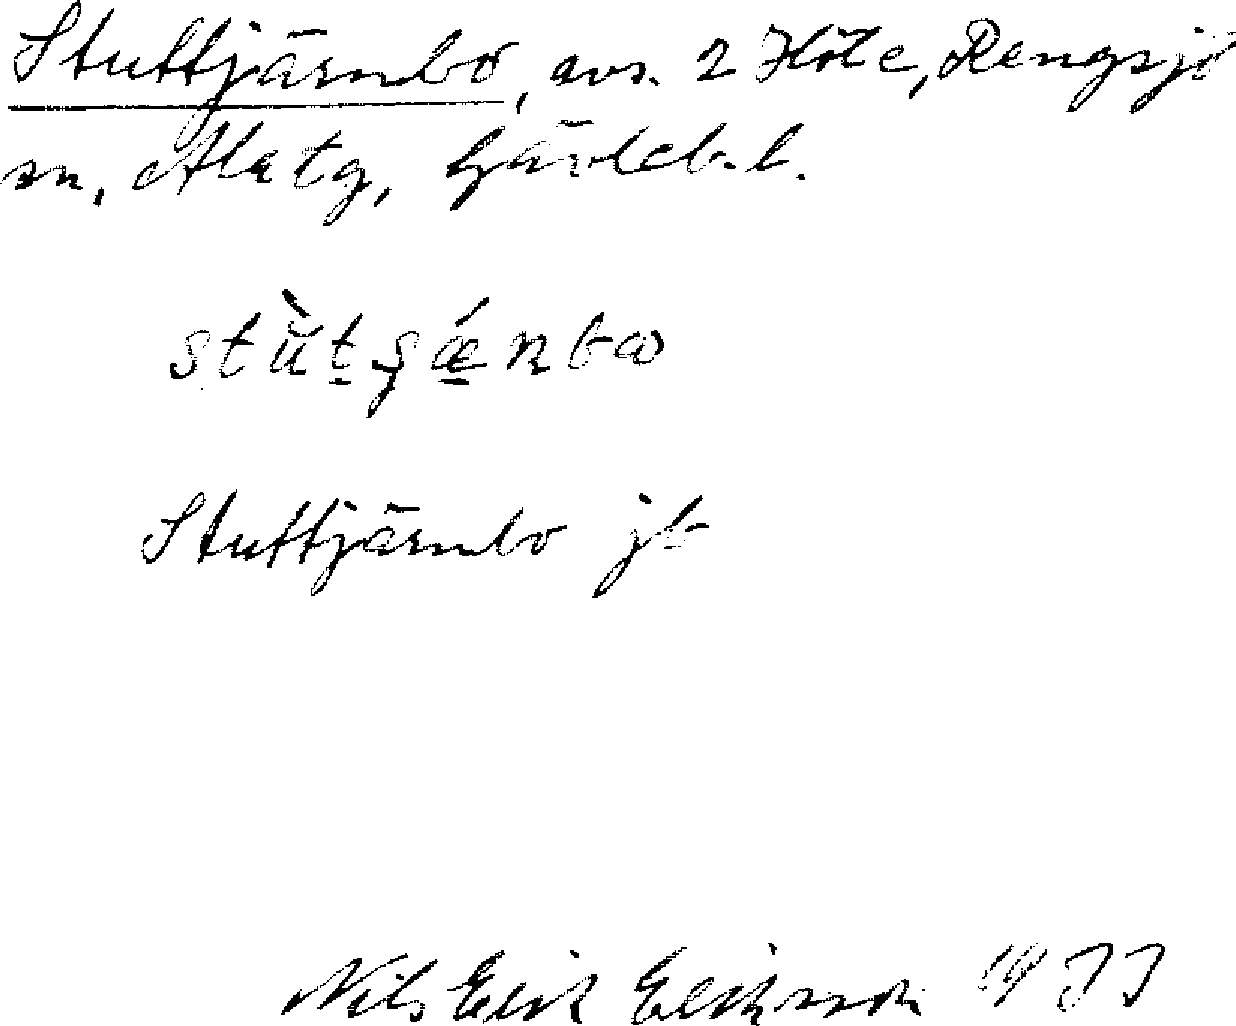 Stuttjärnbo, avs. 2 Höte, Rengsjö
sn, Ala tg, Gävleb. l.
stùtʂǽnbω
Stuttjärnbo jb
Nils Erik Eriksson 1977